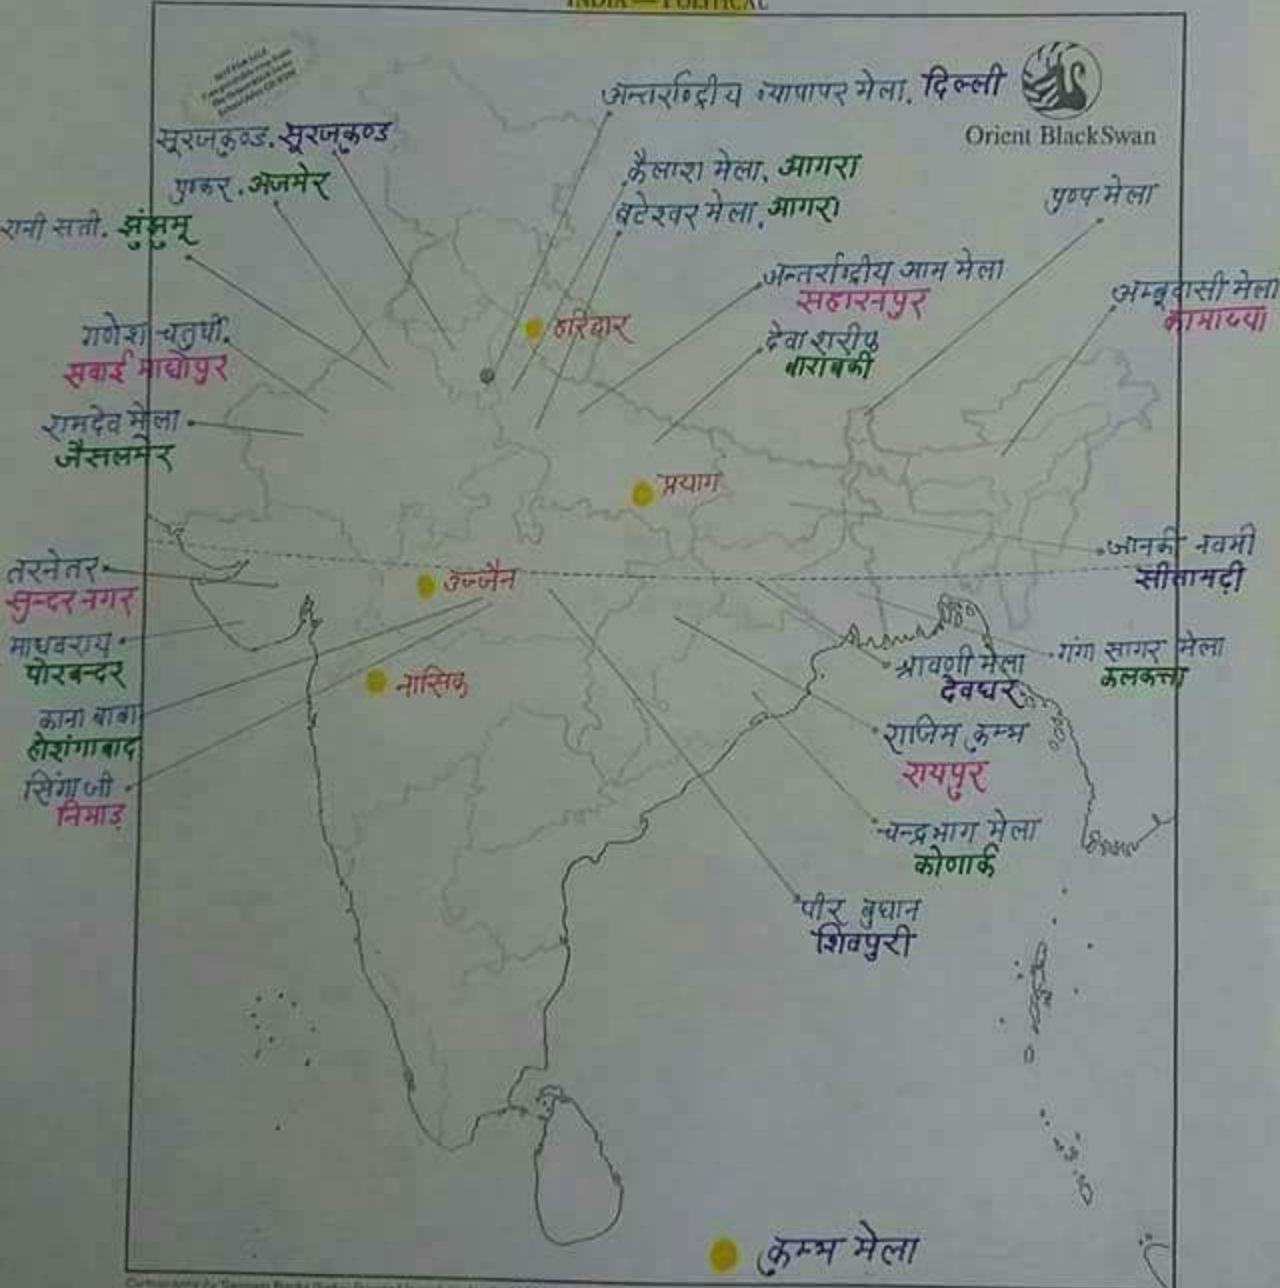 INDIA — POLITICAL
Orient BlackSwan
अन्तर्राष्ट्रीय व्यापापर मेला, दिल्ली
सूरजकुण्ड, सूरजकुण्ड
पुष्कर, अजमेर
रानी सती, झुंझुमू
कैलाश मेला, आगरा
बटेश्वर मेला, आगरा
पुष्प मेला
अन्तर्राष्ट्रीय आम मेला
सहारनपुर
अम्बूवासी मेला
कामाख्या
हरिद्वार
गणेश चतुर्थी
सवाई माधोपुर
देवा शरीफ
बाराबकी
रामदेव मेला
जैसलमेर
प्रयाग
जानकी नवमी
सीतामढ़ी
तरनेतर
सुन्दर नगर
उज्जैन
माधवराय
पोरबन्दर
श्रावणी मेला
देवघर
गंगा सागर मेला
कलकत्ता
नासिक
काना बाबा
होशंगाबाद
सिंगाजी
निमाड़
राजिम कुम्भ
रायपुर
चन्द्रभाग मेला
कोणार्क
पीर बुधान
शिवपुरी
कुम्भ मेला